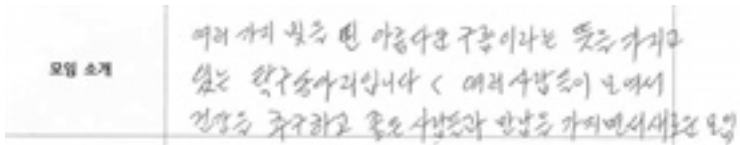 모임 소개
여러 가지 빛을 띤 아름다운 구름이라는 뜻을 가지고
있는 탁구동아리입니다 < 여러 사람들이 모여서
건강을 추구하고 좋은 사람들과 만남을 가지면서 새로운 모임